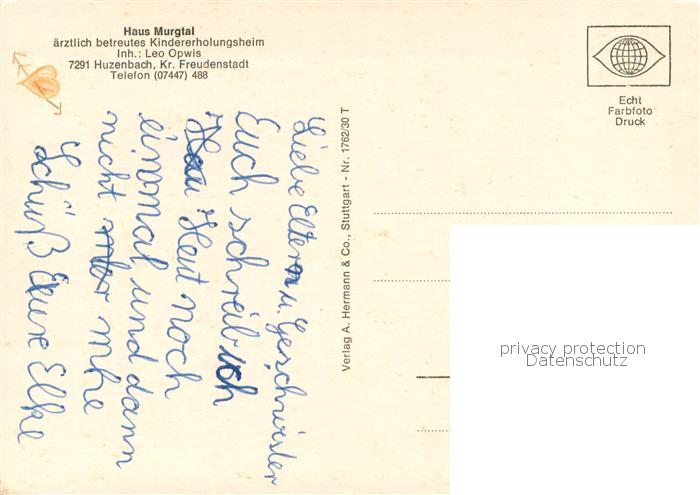 Haus Murgtal
ärztlich betreutes Kindererholungsheim
Inh.: Leo Opwis
7291 Huzenbach, Kr. Freudenstadt
Telefon (07447) 488
Echt
Farbfoto
Druck
Verlag A. Hermann & Co., Stuttgart - Nr. 1762/30 T
Liebe Eltern u. Geschwister
Euch schreib ich
Heut noch
einmal und dann
nicht mhe
Schüß Eure Elke
privacy protection
Datenschutz